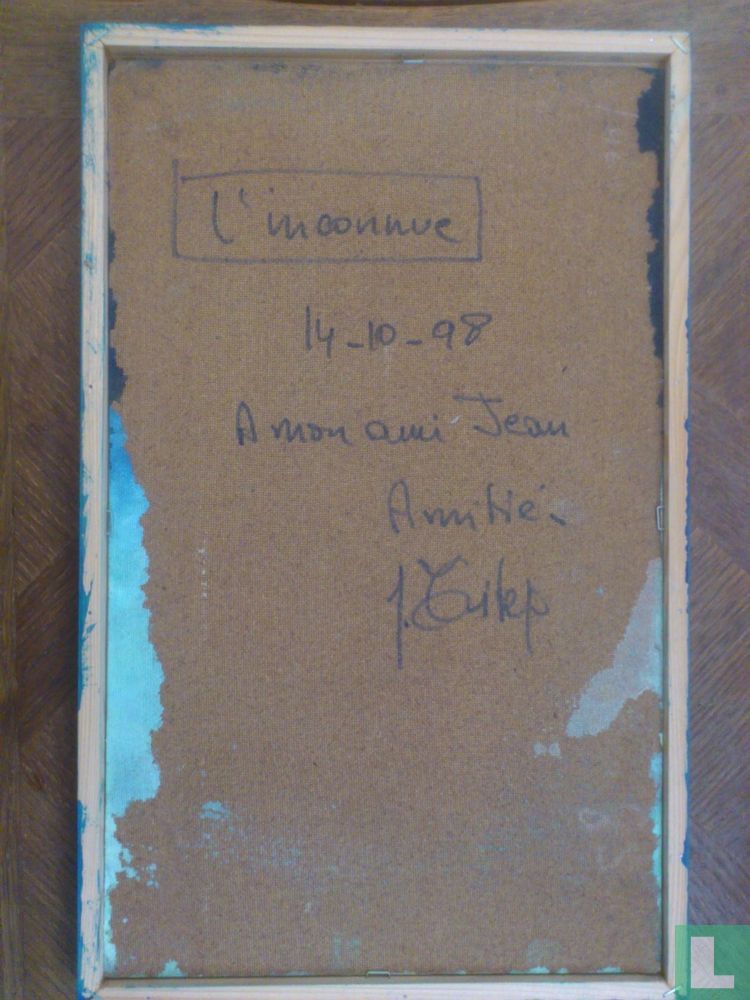 L'inconnue
14-10-98
A mon ami Jean
Amitié.
J.
L